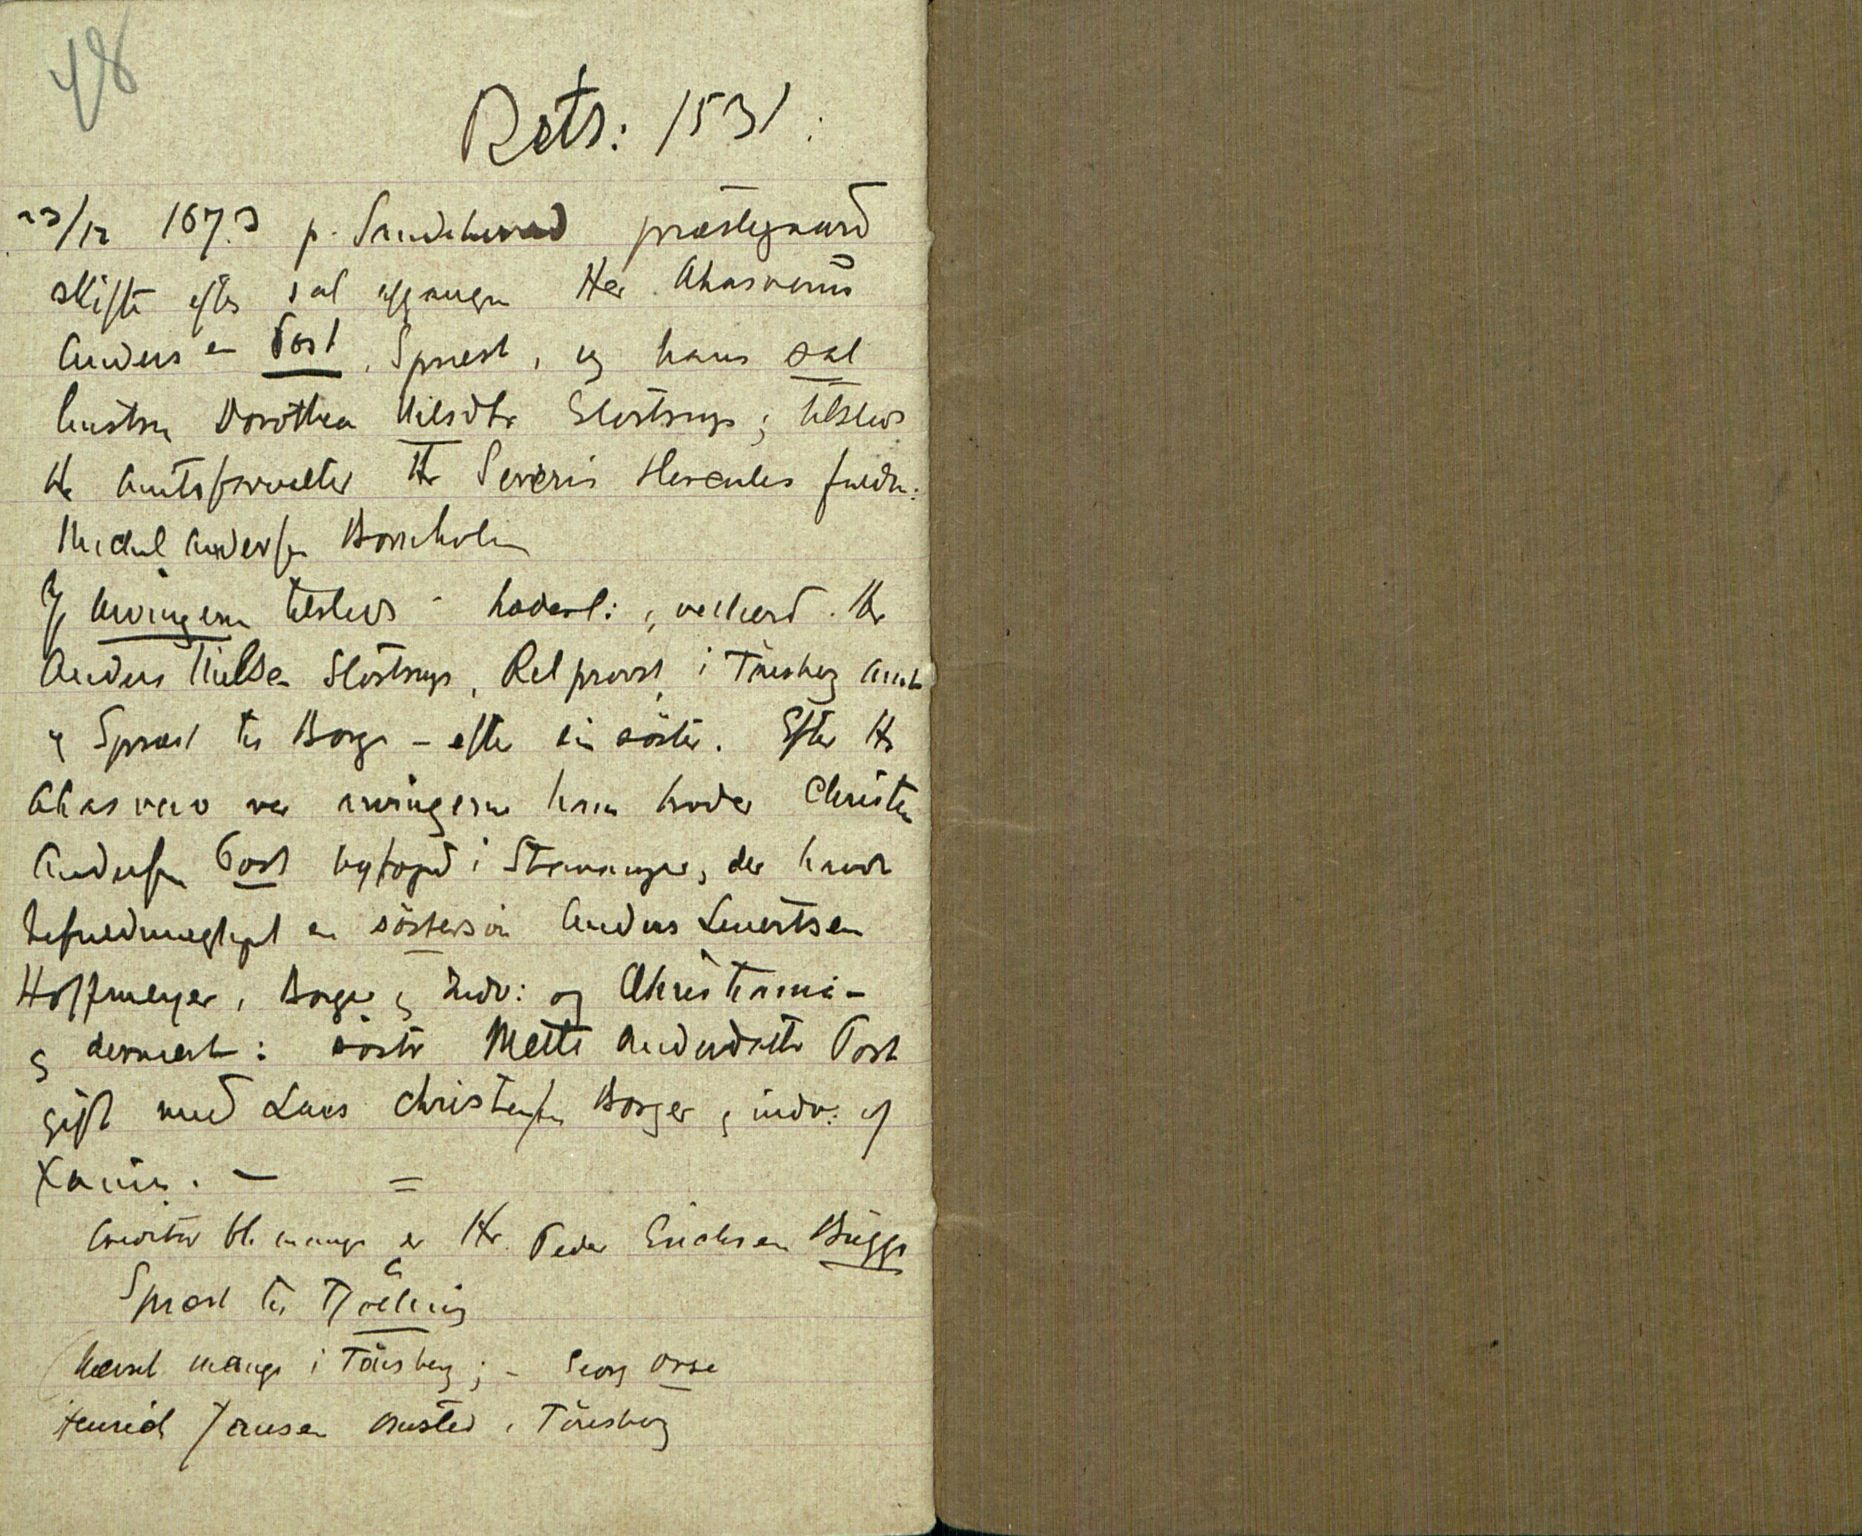 48
Rets: 1531:
23/12 1673 p. Sandeherred præstegaard
skifte efter sal afgangn Her Ahasverus
Andersen Post, Spræst, og hans sal
hustru Dorothea Nilsdtr Slostrup; tilsteds
Hr Amtsforvalter Hr Severin Hercules fuldm:
Michel Andersen Bornholm
Af Arvingern tilsteds - hæderl: , vellærd. Hr
Anders Nielsen Slostrup, Rel provst, i Tönsberg amt
og Spræst til Borge - efter sin söster. Efter Hr
Ahasvero var arvingerne hans broder Christen
Andersen Post byfoged i Stavanger, der havde
befuldmægtiget en söstersön Anders Lauertsen
Hoffmeyer, Borger og Indv: og Christiania -
og dernæst: söstr Mette Andersdattr Post
gift med Lars Christensen Borger og indv: af
Xania. - =
Creditor bl. mange er Hr. Peder Erichsen Bugge
Spræst til Tjølling
Navnl mange i Tönsberg; - Georg Orse
Henrich Jansen Ousted i Tönsberg